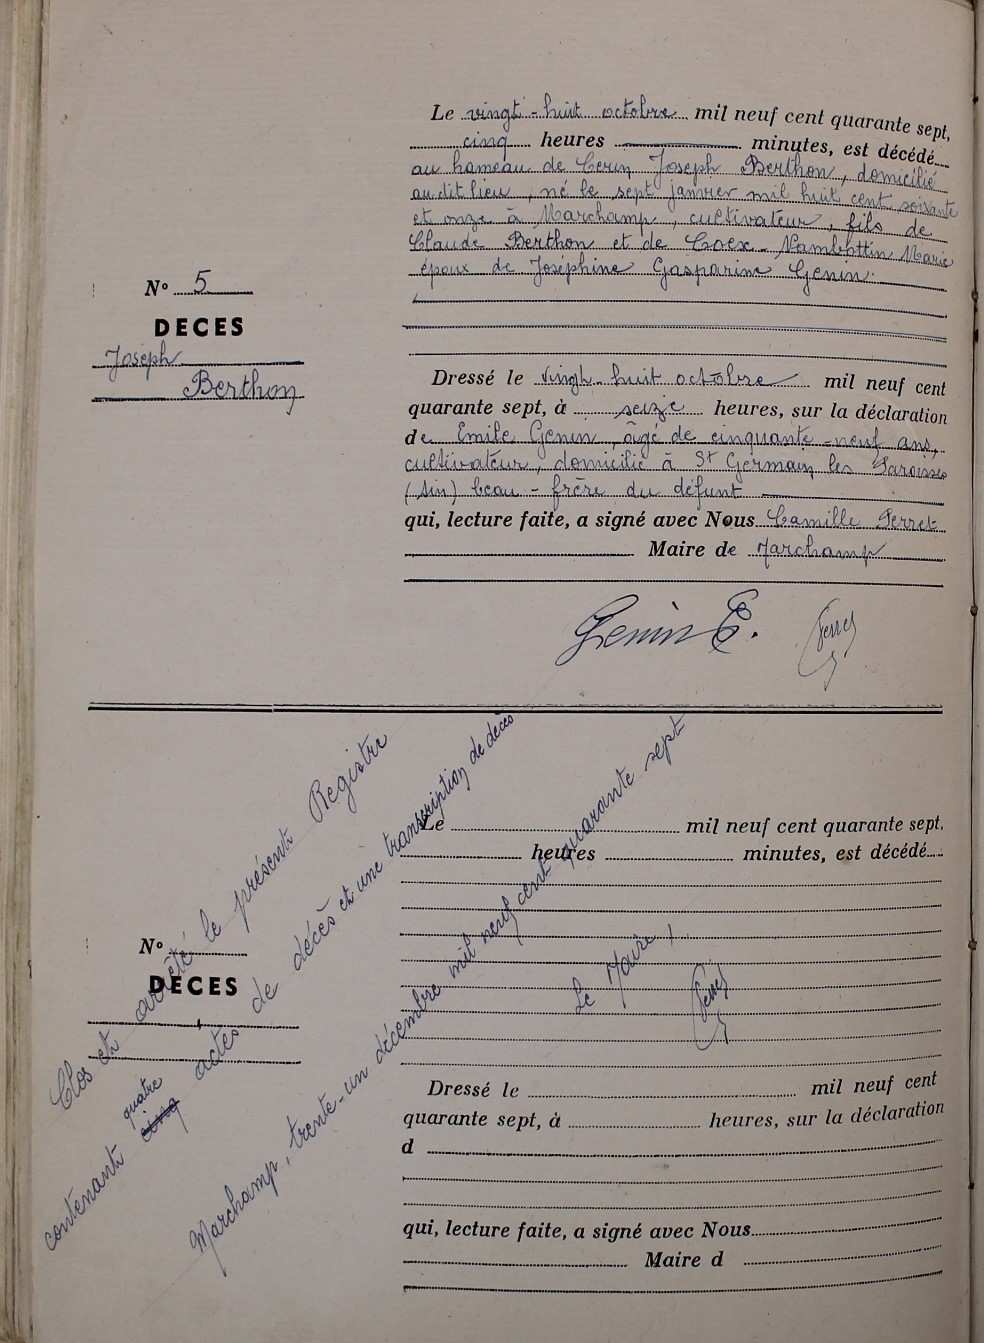 Le vingt-huit octobre mil neuf cent quarante sept,
cinq heures minutes, est décédé
au hameau de Cerin Joseph Berthon, domicilié
au dit lieu, né le sept janvier mil huit cent soixante
et onze à Marchamp, cultivateur, fils de
Claude Berthon et de Coex-Nambottin Marie
époux de Joséphine Gasparine Genin.
N° 5
DECES
Joseph
Berthon
Dressé le vingt-huit octobre mil neuf cent
quarante sept, à seize heures, sur la déclaration
de Emile Genin, âgé de cinquante-neuf ans,
cultivateur, domicilié à St Germain les Paroisses
(Ain) beau-frère du défunt
qui, lecture faite, a signé avec Nous Camille Perret
Maire de Marchamp
Genin E.
Perret
Le mil neuf cent quarante sept,
heures minutes, est décédé
N°
DECES
Dressé le mil neuf cent
quarante sept, à heures, sur la déclaration
d
qui, lecture faite, a signé avec Nous
Maire d
Clos et arrêté le présent Registre
contenant cinq quatre actes de décès et une transcription de décès
Marchamp, trente-un décembre mil neuf cent quarante sept
Le Maire,
Perret